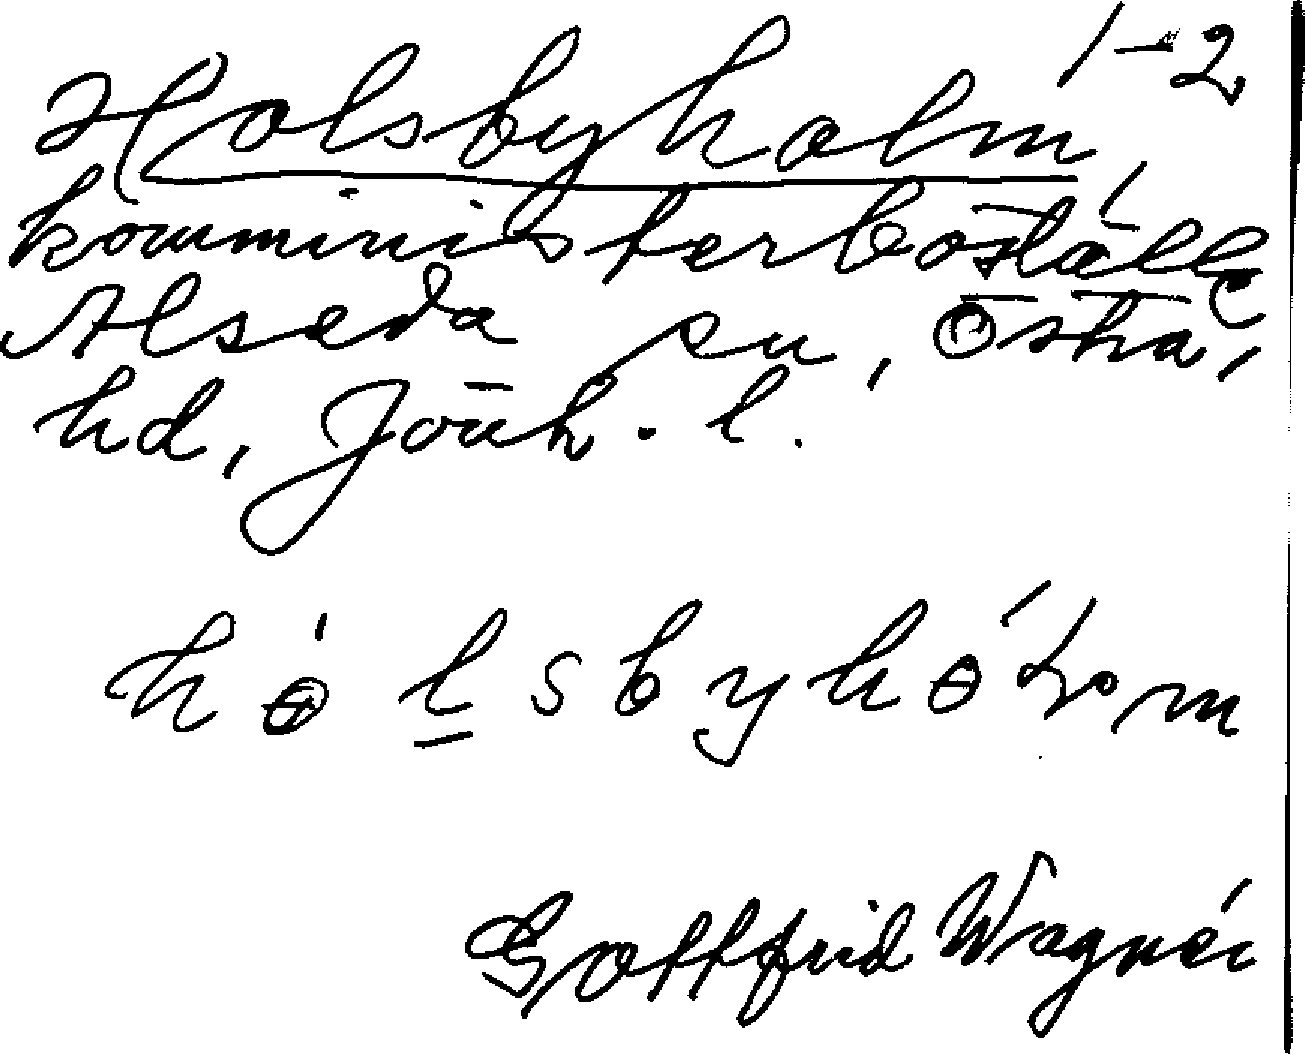 1-2
Holsbyholm,
komministerboställe
Alseda sn, Östra
hd, Jönk. l.
hɵ́lsbyhɵ́lm
Gottfrid Wagnér